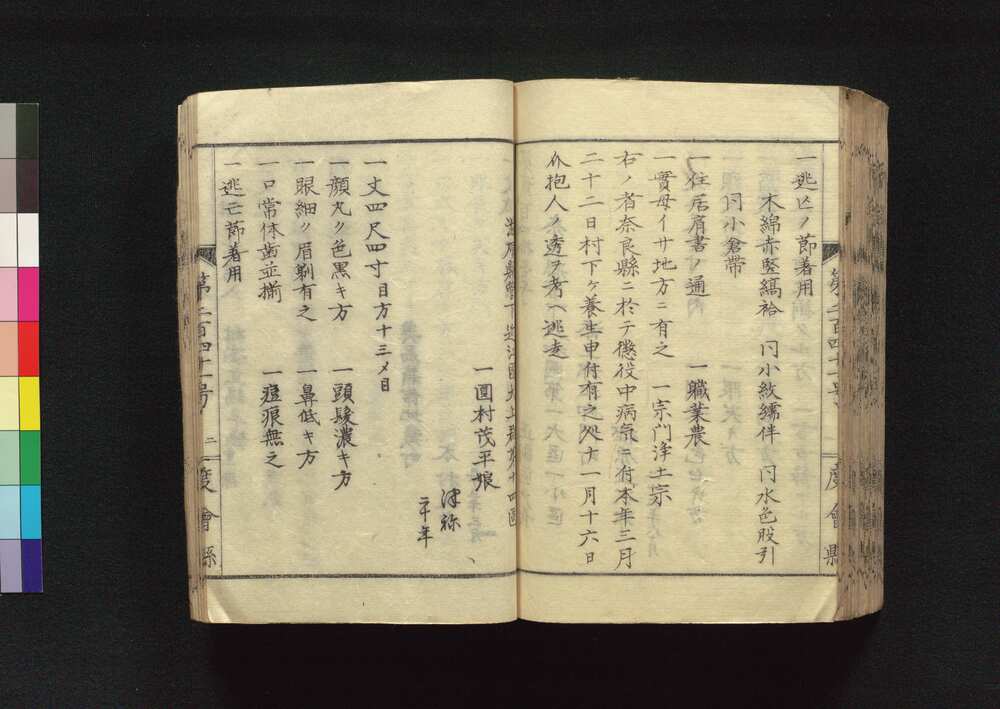 一逃亡ノ節著用
木綿赤竪縞袷 同小紋襦伴 同水色股引
同小倉帶
一住居肩書ノ通 一職業農
一實母イサ地方ニ有之 一宗門浄土宗
右ノ者奈良縣ニ於テ懲役中病氣ニ付本年三月
二十二日村下ケ養生申付有之処十一月十六日
介抱人ノ透ヲ考ヘ逃走
度會縣
一圓村茂平娘
津祢
二十年
一丈四尺四寸目方十三メ目
一顔丸ク色黒キ方 一頭髮濃キ方
一眼細ク眉剃有之 一鼻低キ方
一口常体歯並揃 一痘痕無之
一逃亡節著用
第二百四十一号 二 度會縣